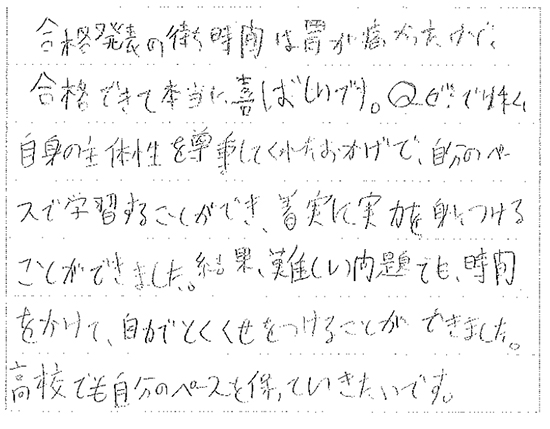 合格発表の待ち時間は胃が痛かったけど、
合格できて本当に喜ばしいです。Qゼミでは私
自身の主体性を尊重してくれたおかげで、自分のペー
スで学習することができ、着実に実力を身につける
ことができました。結果、難しい問題でも、時間
をかけて、自力でとくくせをつけることができました。
高校でも自分のペースを保っていきたいです。